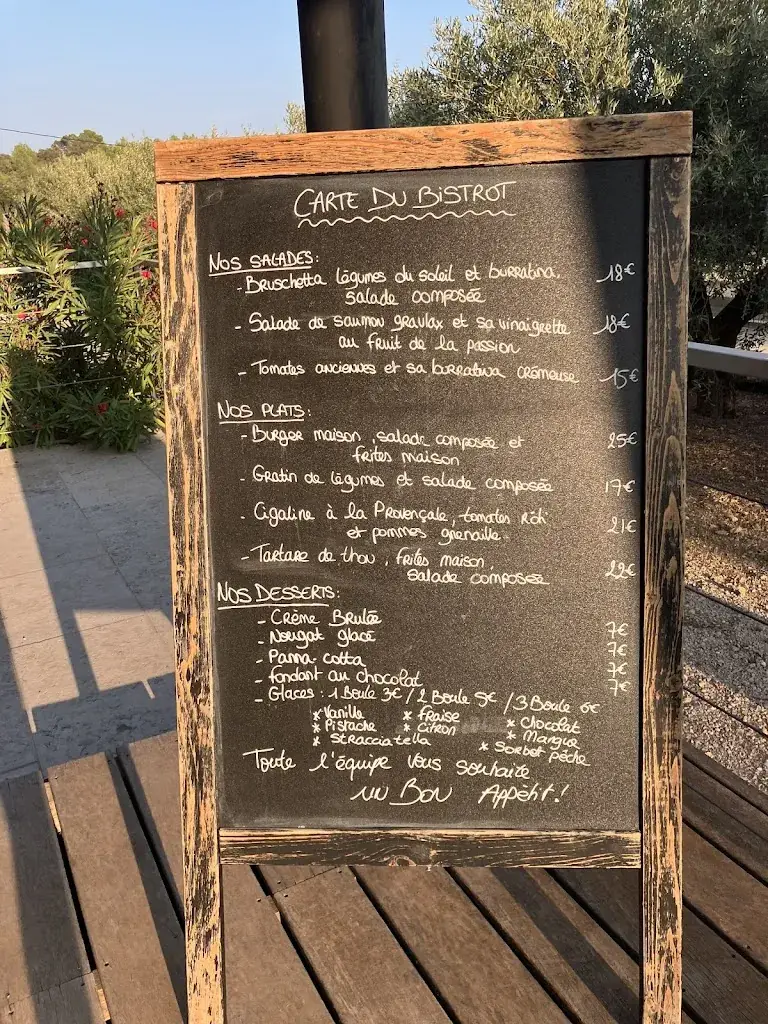 CARTE DU BISTROT
NOS SALADES:
- Bruschetta légumes du soleil et burratina. 18€
salade composée
- Salade de saumon gravlax et sa vinaigrette 18€
au fruit de la passion
- Tomates anciennes et sa burratina crémeuse 15€
NOS PLATS:
- Burger maison, salade composée et 25€
frites maison
- Gratin de légumes et salade composée 17€
- Cigaline à la Provençale, tomates rôti 21€
et pommes grenaille
- Tartare de thon, frites maison, 22€
salade composée
NOS DESSERTS:
- Crème Brulée 7€
- Nougat glacé 7€
- Panna-cotta 7€
- fondant au chocolat 7€
- Glaces : 1 Boule 3€ / 2 Boule 5€ / 3 Boule 6€
* Vanille * fraise * chocolat
* Pistache * citron * Mangue
* Stracciatella * Sorbet pêche
Toute l'équipe vous souhaite
un Bon Appétit!